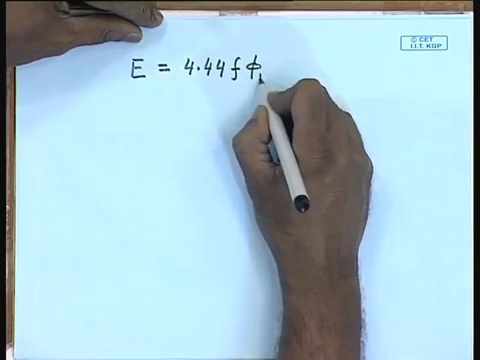 © CET
I.I.T. KGP
E = 4.44 f Φ